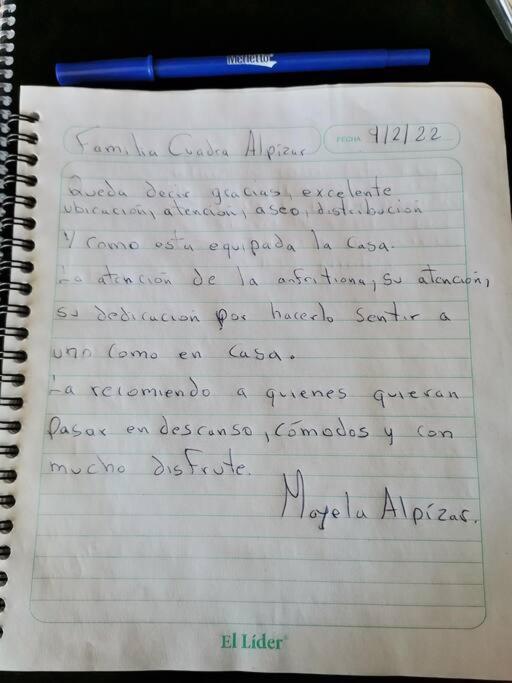 Merletto
Familia Cuadra Alpízar
FECHA 9/2/22
Queda decir gracias, excelente
ubicación, atención, aseo, distribución
Y como esta equipada la casa.
La atención de la anfitriona, su atención,
su dedicación por hacerlo sentir a
uno como en casa.
La recomiendo a quienes quieran
pasar en descanso, cómodos y con
mucho disfrute.
Mayela Alpízar.
El Líder